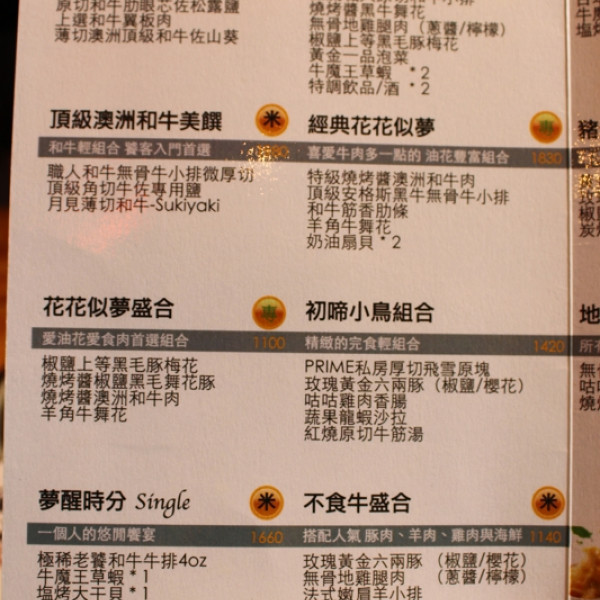 原切和牛肋眼芯佐松露鹽
上選和牛翼板肉
薄切澳洲頂級和牛佐山葵
燒烤醬黑牛舞花
無骨地雞腿肉（蔥醬/檸檬）
椒鹽上等黑毛豚梅花
黃金一品泡菜
牛魔王草蝦 *2
特調飲品/酒 *2
頂級澳洲和牛美饌 米
和牛輕組合 饕客入門首選
職人和牛無骨牛小排微厚切
頂級角切牛佐專用鹽
月見薄切和牛-Sukiyaki
經典花花似夢 専
喜愛牛肉多一點的 油花豐富組合 1830
特級燒烤醬澳洲和牛肉
頂級安格斯黑牛無骨牛小排
和牛筋香肋條
羊角牛舞花
奶油扇貝 *2
花花似夢盛合 専
愛油花愛食肉首選組合 1100
椒鹽上等黑毛豚梅花
燒烤醬椒鹽黑毛舞花豚
燒烤醬澳洲和牛肉
羊角牛舞花
初啼小鳥組合
精緻的完食輕組合 1420
PRIME私房厚切飛雪原塊
玫瑰黃金六兩豚（椒鹽/櫻花）
咕咕雞肉香腸
蔬果龍蝦沙拉
紅燒原切牛筋湯
夢醒時分 Single 米
一個人的悠閒饗宴 1660
極稀老饕和牛牛排4oz
牛魔王草蝦 *1
塩烤大干貝 *1
不食牛盛合 米
搭配人氣 豚肉、羊肉、雞肉與海鮮 1140
玫瑰黃金六兩豚（椒鹽/櫻花）
無骨地雞腿肉（蔥醬/檸檬）
法式嫩肩羊小排